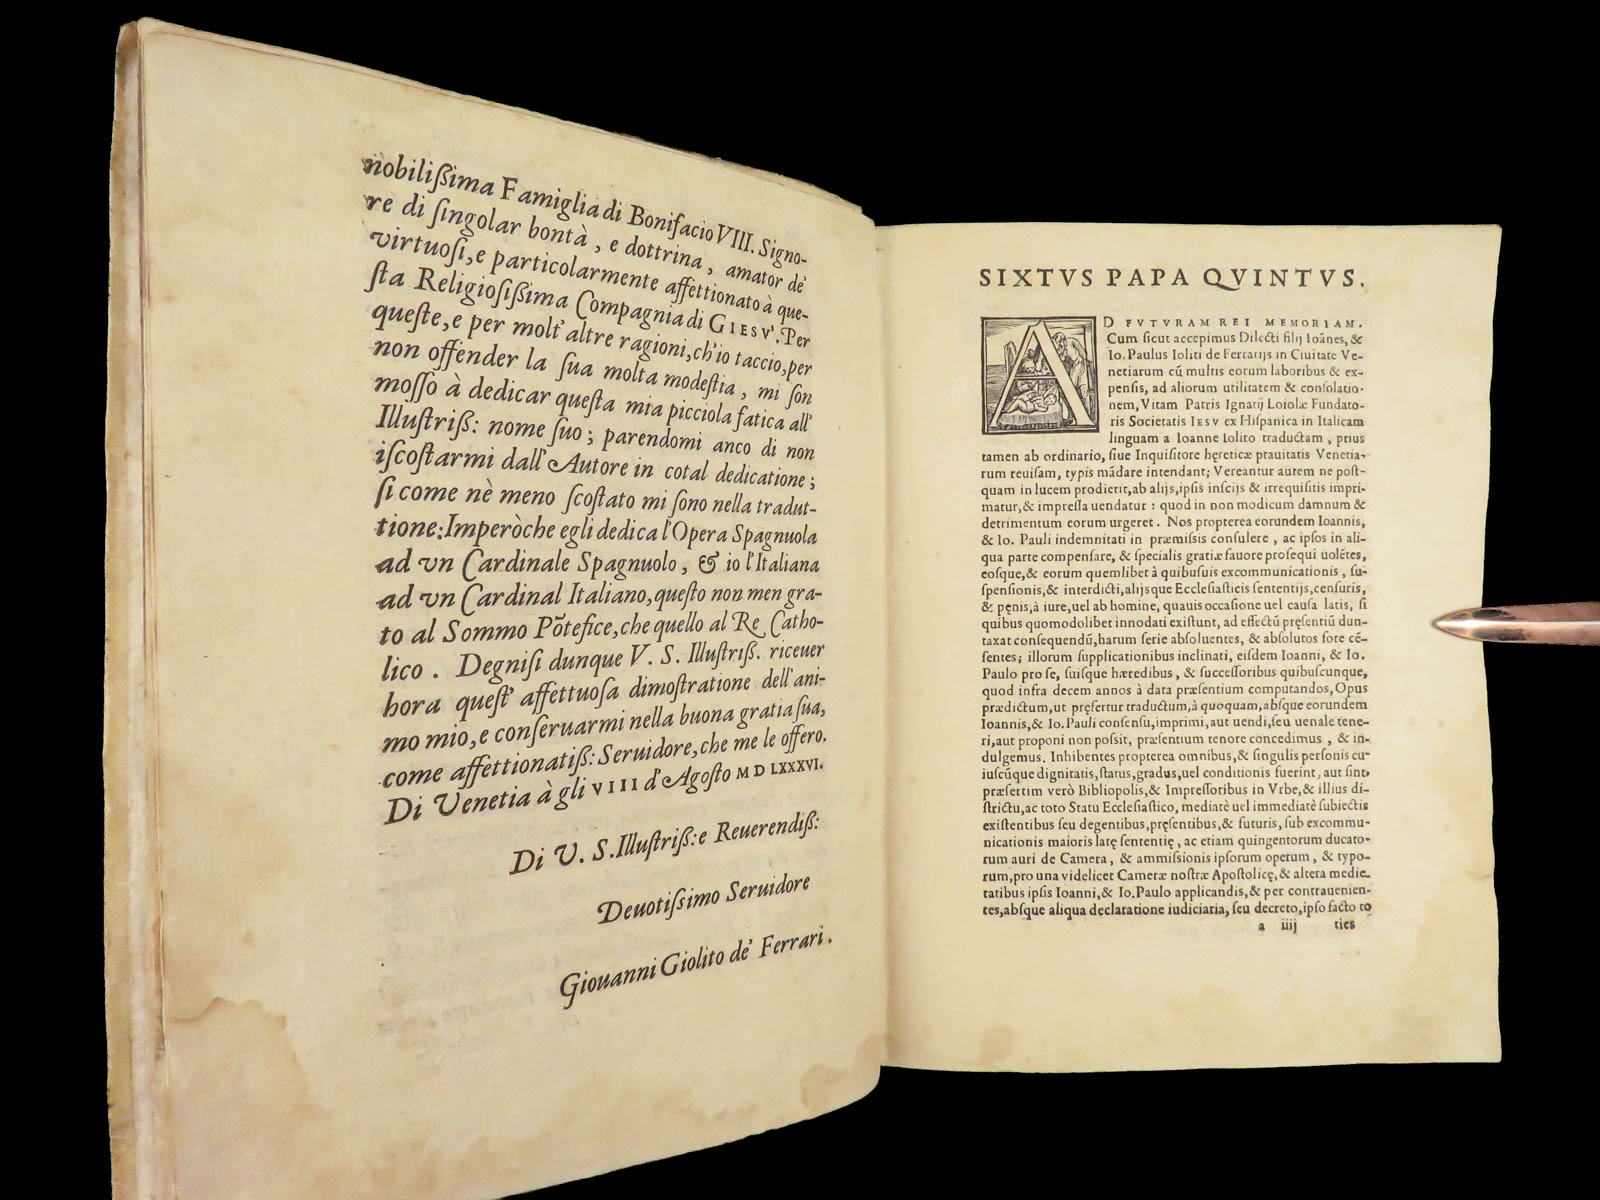 nobilißima Famiglia di Bonifacio VIII. Signo-
re di ſingolar bontà, e dottrina, amator de'
virtuoſi, e particolarmente affettionato à que-
ſta Religioſißima Compagnia di GIESV'. Per
queſte, e per molt' altre ragioni, ch'io taccio, per
non offender la ſua molta modeſtia, mi ſon
moſſo à dedicar queſta mia picciola fatica all'
Illuſtriß: nome ſuo; parendomi anco di non
iſcoſtarmi dall' Autore in cotal dedicatione;
ſi come nè meno ſcoſtato mi ſono nella tradut-
tione: Imperòche egli dedica l'Opera Spagnuola
ad vn Cardinale Spagnuolo, & io l'Italiana
ad vn Cardinal Italiano, queſto non men gra-
to al Sommo Põtefice, che quello al Re Catho-
lico. Degniſi dunque V. S. Illuſtriß. riceuer
hora queſt' affettuoſa dimoſtratione dell' ani-
mo mio, e conſeruarmi nella buona gratia ſua,
come affettionatiß: Seruidore, che me le offero.
Di Venetia à gli VIII d'Agoſto MDLXXXVI.
Di V. S. Illuſtriß: e Reuerendiß:
Deuotiſsimo Seruidore
Giouanni Giolito de' Ferrari.
SIXTVS PAPA QVINTVS.
AD FVTVRAM REI MEMORIAM.
Cum ſicut accepimus Dilecti filij Ioānes, &
Io. Paulus Ioliti de Ferrarijs in Ciuitate Ve-
netiarum cū multis eorum laboribus & ex-
penſis, ad aliorum utilitatem & conſolatio-
nem, Vitam Patris Ignatij Loiolæ Fundato-
ris Societatis IESV ex Hiſpanica in Italicam
linguam a Ioanne Iolito traductam, prius
tamen ab ordinario, ſiue Inquiſitore hęreticæ prauitatis Venetia-
rum reuiſam, typis mādare intendant; Vereantur autem ne poſt-
quam in lucem prodierit, ab alijs, ipſis inſcijs & irrequiſitis impri-
matur, & impreſſa uendatur: quod in non modicum damnum &
detrimentum eorum urgeret. Nos propterea eorundem Ioannis,
& Io. Pauli indemnitati in præmiſsis conſulere, ac ipſos in ali-
qua parte compenſare, & ſpecialis gratiæ fauore proſequi uolētes,
eoſque, & eorum quemlibet à quibuſuis excommunicationis, ſu-
ſpenſionis, & interdicti, alijsque Eccleſiaſticis ſententijs, cenſuris,
& pęnis, à iure, uel ab homine, quauis occaſione uel cauſa latis, ſi
quibus quomodolibet innodati exiſtunt, ad effectū pręſentiū dun-
taxat conſequendū, harum ſerie abſoluentes, & abſolutos fore cē-
ſentes; illorum ſupplicationibus inclinati, eiſdem Ioanni, & Io.
Paulo pro ſe, ſuiſque hæredibus, & ſucceſſoribus quibuſcunque,
quod infra decem annos à data præſentium computandos, Opus
prædictum, ut pręfertur traductum, à quoquam, abſque eorundem
Ioannis, & Io. Pauli conſenſu, imprimi, aut uendi, ſeu uenale tene-
ri, aut proponi non poſsit, præſentium tenore concedimus, & in-
dulgemus. Inhibentes propterea omnibus, & ſingulis perſonis cu-
iuſcūque dignitatis, ſtatus, gradus, uel conditionis fuerint, aut ſint,
præſertim verò Bibliopolis, & Impreſſoribus in Vrbe, & illius di-
ſtrictu, ac toto Statu Eccleſiaſtico, mediatè uel immediatè ſubiectis
exiſtentibus ſeu degentibus, pręſentibus, & futuris, ſub excommu-
nicationis maioris latę ſententię, ac etiam quingentorum ducato-
rum auri de Camera, & ammiſsionis ipſorum operum, & typo-
rum, pro una videlicet Cameræ noſtræ Apoſtolicę, & altera medie-
tatibus ipſis Ioanni, & Io. Paulo applicandis, & per contrauenien-
tes, abſque aliqua declaratione iudiciaria, ſeu decreto, ipſo facto to
a iiij ties